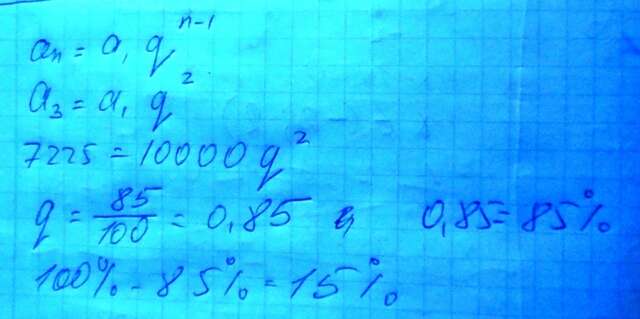 aₙ = a₁ qⁿ⁻¹
a₃ = a₁ q²
7225 = 10000q²
q = 85/100 = 0,85 0,85 = 85%
100% - 85% = 15%